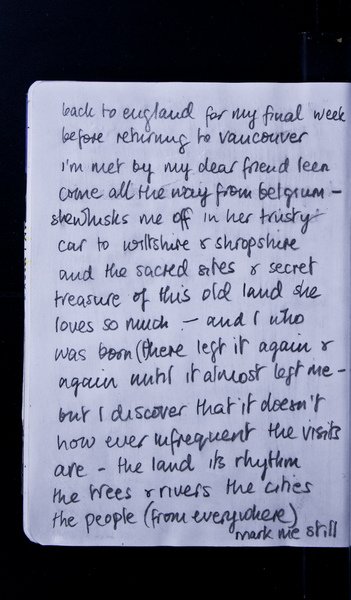 back to england for my final week
before returning to vancouver
i'm met by my dear friend leen
come all the way from belgium –
she whisks me off in her trusty
car to wiltshire & shropshire
and the sacred sites & secret
treasure of this old land she
loves so much – and I who
was born (there left it again &
again until it almost left me –
but I discover that it doesn't
how ever infrequent the visits
are – the land its rhythm
the trees & rivers the cities
the people (from everywhere)
mark me still